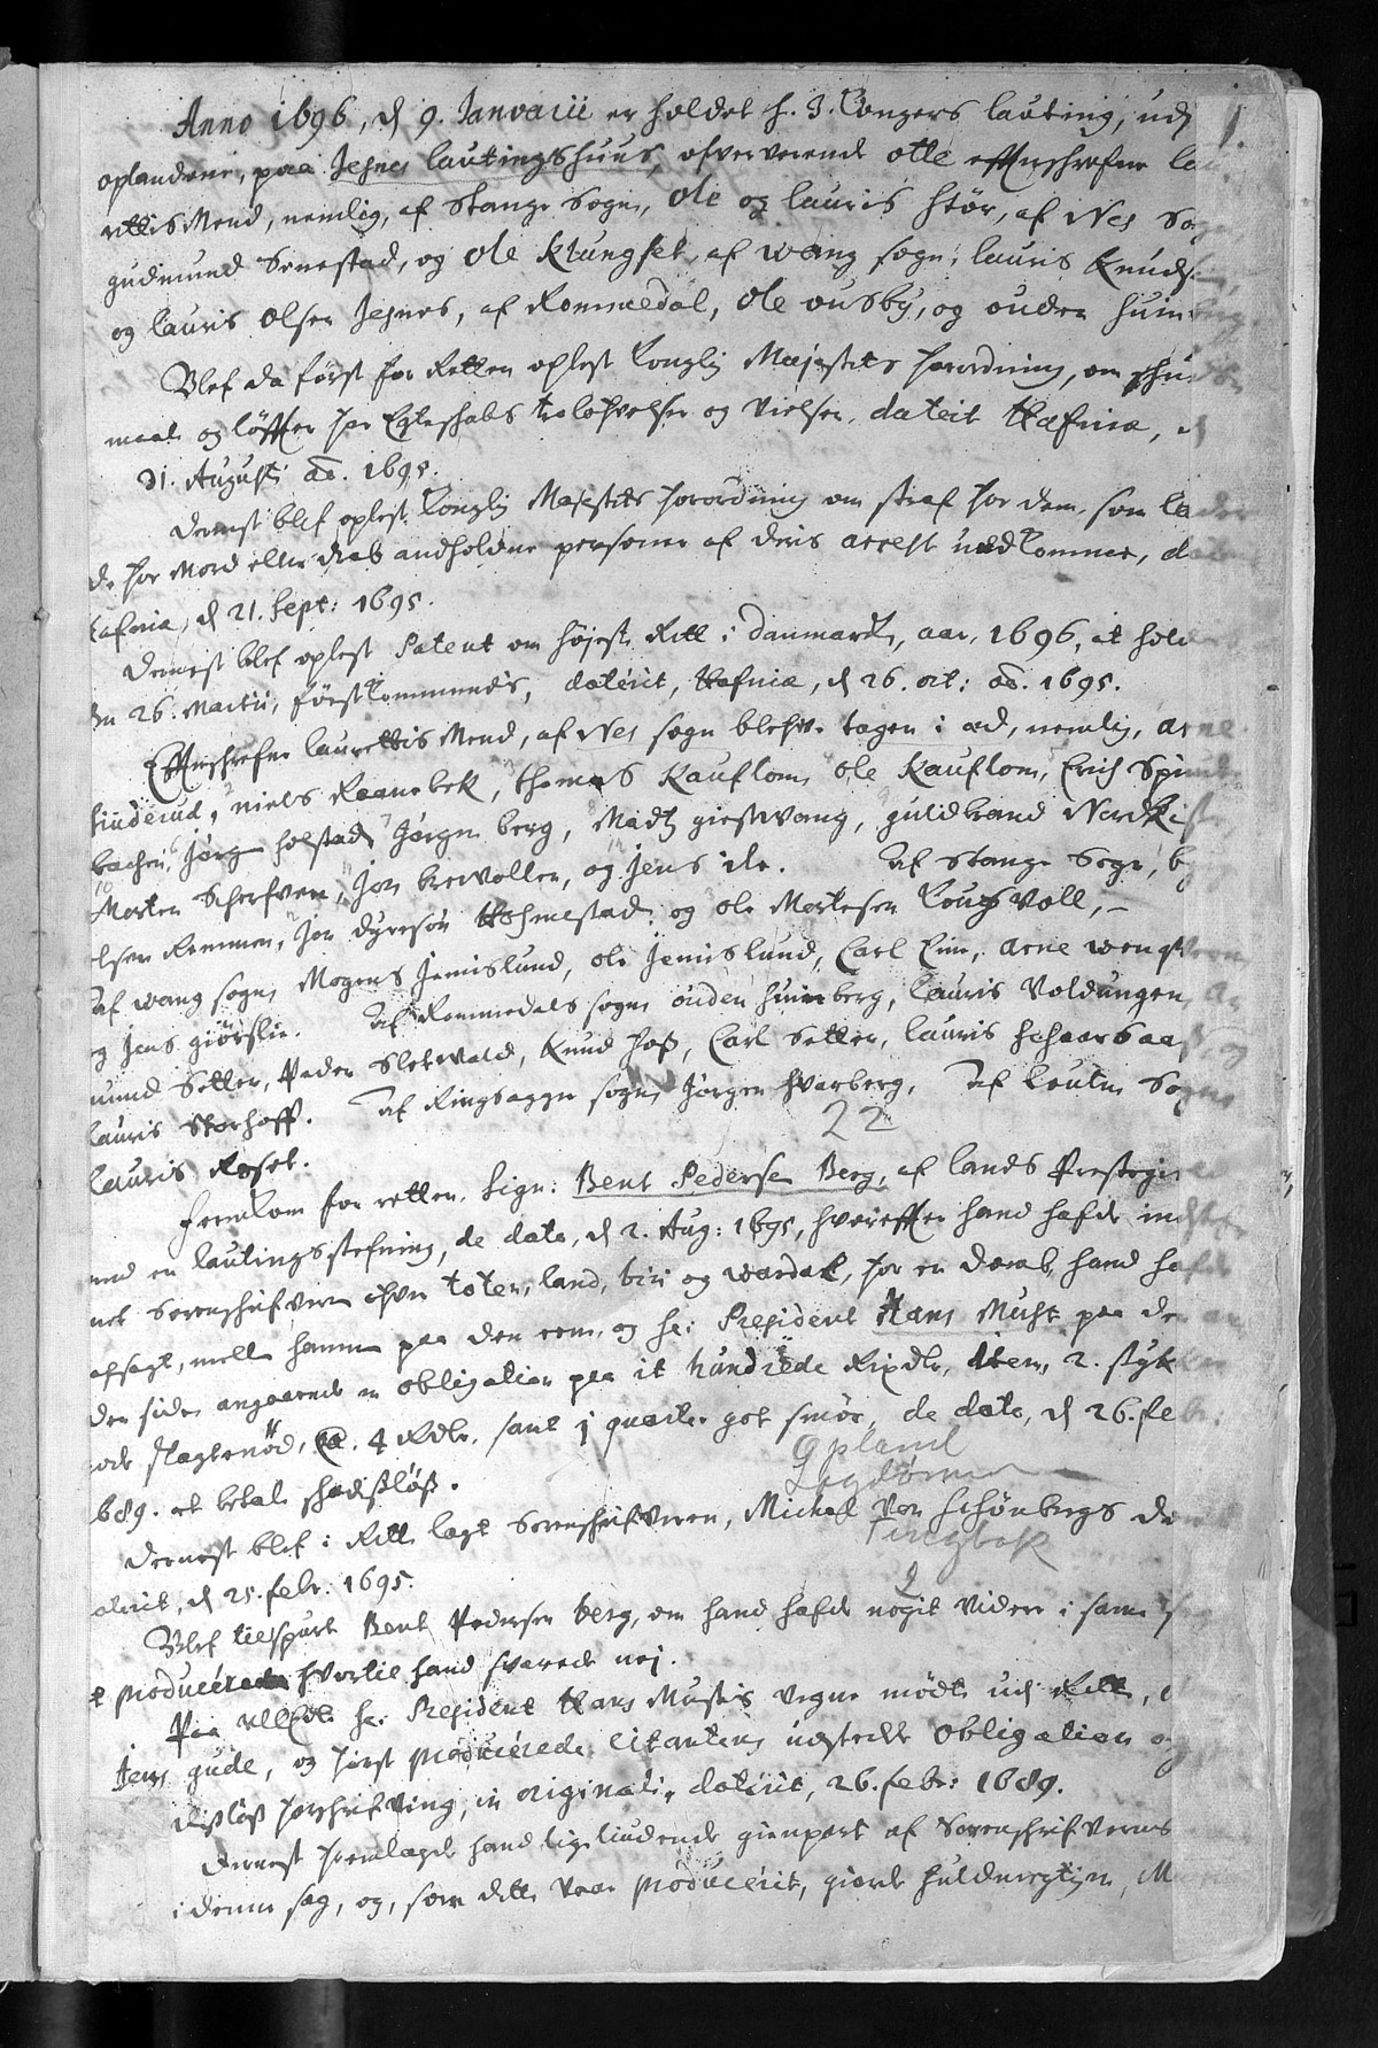 1.
Anno 1696, d 9. Janvarii er holdet h. 3. Kongers lauting, udj
oplandene, paa Jesnes lautingshuus, ofververende otte effterschrefne lau
rettis Mend, nemlig, af Stange Sogn, Ole og lauris Stör, af Nes Sogn
gudmund Snnestad, og Ole Klungset, af wang sogn, lauris Knuds
og lauris Olsen Jesnes, af Rommedal, Ole ousby, og ouden huin berg
Blef da först for Retten oplest Konglig Majestets forordning, om
maal og löffter for Egteschabs trolofvelser og Vielser, daterit Hafniæ, d
31. Augusti ao. 1695.
Dernest blef oplest Konglig Majestets forordning om straf for dem, som lader
de for Mord eller drab andholdne personer af deris arrest undkomme, dat
Hafniæ, d 21. Sept: 1695.
Dernest blef oplest Patent om höjeste Rett i Danmark, aar, 1696, at hold
den 26. Martii, förstkommendis, daterit, Hafniæ, d 26. oct: ao. 1695.
Effterschrefne laurettis Mend, af Nes sogn blefve tagen i æd, nemlig, arne
hiuderud, niels Raanebek, thomas Kauflom, ole Kauflom, Erich Spind
bachen, Jörgen holstad, Jörgen berg, Madz giestvang, guldbrand Nerdki
Morten Scherfven, Jon brevollen, og Jens ile. Af Stange Sogn, b
lsen Rommen, Jon dyresön Holmestad, og ole Mortesen Kougsvoll,
Af wang sogn, Mogens Jemislund, ole Jemislund, Carl Finn, arne weng
og Jens giörslie. Af Rommedals sogn ouden huinberg, lauris Voldungen, A
mund Setter, Peder Sletvold, Knud hoß, Carl Setter, lauris schaarsaa og
lauris Storhoff. Af Ringsager sogn Jörgen hvarberg, Af leuten Sogn
22
lauris Roset.
Fremkom for retten, Sign: Bent Pedersen Berg, af lands Prestegi
med en lautingsstefning, de dato, d 2. Aug: 1695, hvoreffter hand hafde indst
net Sorenschrifveren ofver toten, land, biri og wardal, for en domb, hand hafde
afsagt, mellem hannem paa den eene, og hr: President Hans Must paa den an
den side, angaaende en obligation paa it hundrede Rixdlr, item, 2. styk
gode slagtenöd, a. 4 Rdlr. samt j quarter got smör, de dato, d 26. feb:
1689. at betale schadislöß.
Opland
Lagdömme
Tingbok
2
Dernest blef i Rette lagt Sorenschrifveren, Michel von Schönbergs d
daterit, d 25. febr. 1695.
Blef tilspurt Bent Pedersen berg, om hand hafde nogit videre i samme s
at producére, hvortil hand svarede nej.
Paa hr. President Hans Mustis vegne mödte udj Rette,
Jens gude, og först producérede Citantens udstedte obligation og
dislöß forschrifving, in originali, daterit, 26. febr: 1689.
Dernest fremlagde hand ligeliudende gienpart af Sorenschrifverens
i denne sag, og, som dette var producérit, giorde fuldmegtigen, M